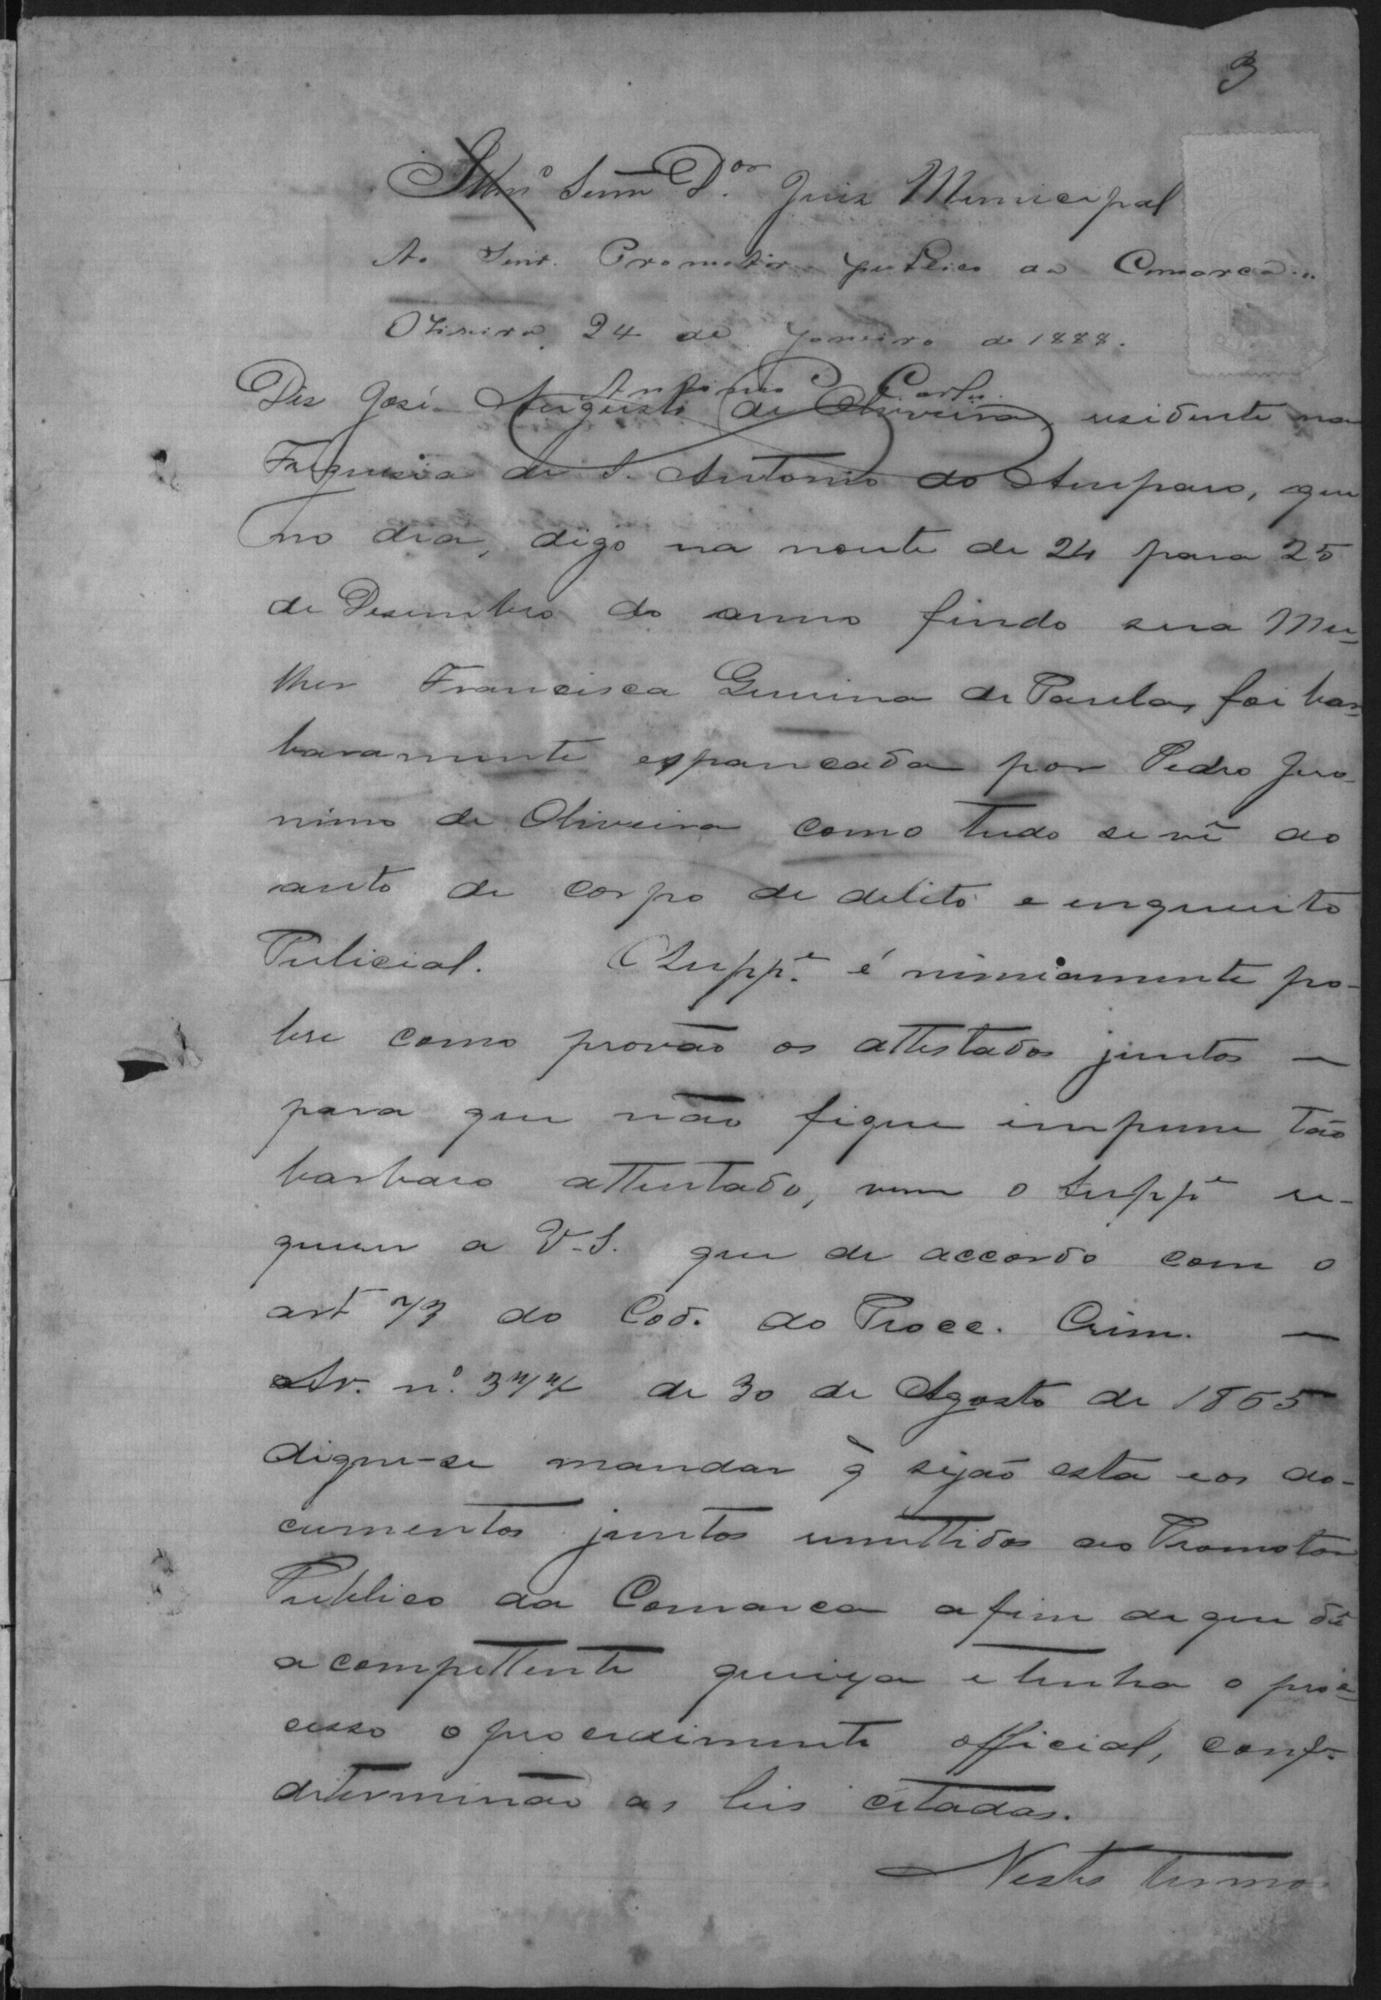 3
Illmo Senr Dor Juiz Municipal
Ao Senr. Promotor publico da Comarca.
Oliveira, 24 de Janeiro de 1888.
Antonio Carlos
Diz José Augusto de Oliveira, residente na
Freguesia de S. Antonio do Amparo, que
no dia, digo na noute de 24 para 25
de Desembro do anno findo sua Mu-
lher Francisca de Paula, foi bar-
baramente espancada por Pedro Jero-
nimo de Oliveira como tudo se vê do
auto de corpo de delito e enquerito
Pulicial. O Suppe é nimiamente po-
bre como provão os attestados juntos e
para que não fique impune tão
barbaro attentado, vem o Suppe re-
querer a V.S. que de accordo com o
art 73 do Cod. do Proce. Crim. e
Av. nº 377 de 30 de Agosto de 1865
digne-se mandar q̃ sejão esta e os do-
cumentos juntos remettidos ao Promotor
Publico da Comarca afim de que dê
a compettente queixa e tenha o pro-
cesso o procedimento official, conf.e
determinão as leis citadas.
Nestes termos